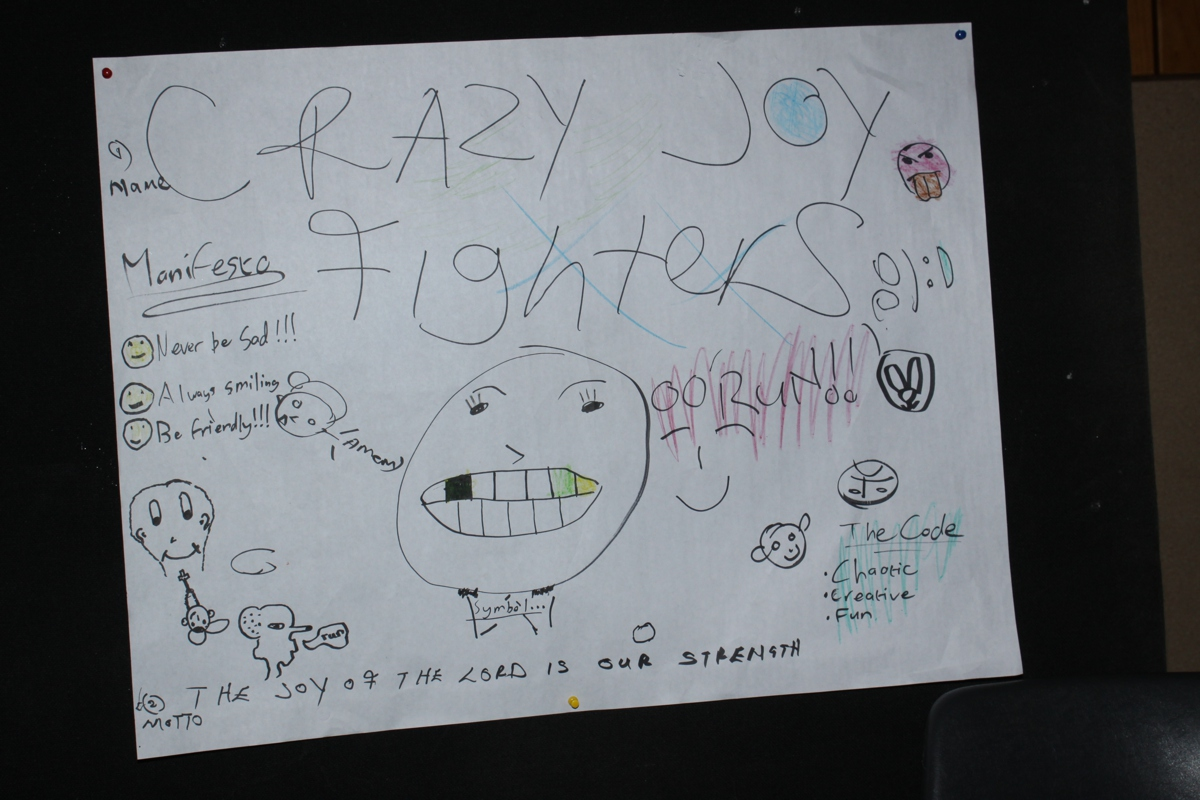 ① Name
CRAZY JOY
Fighters
Manifesto
Never be Sad!!!
Always smiling
Be friendly!!!
AMEN
RUN!!!
Symbol...
The Code
• Chaotic
• Creative
• Fun
run
② MOTTO
THE JOY OF THE LORD IS OUR STRENGTH